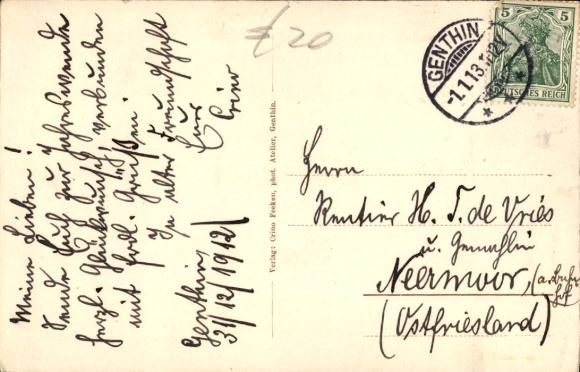 Meine Lieben!
Sende Euch zur Jahreswende
herzl. Glückwunsch verbunden
mit frdl. Grüßen.
In alter Freundschaft
Euer
Crino
Genthin
31/12/1912
£20
Verlag: Crino Feeken, phot. Atelier, Genthin.
GENTHIN
-1.1.13.
5 5
DEUTSCHES REICH
Herrn
Rentier H. T. de Vries
u. Gemahlin
Neermoor, (a. Bahn-
hof
(Ostfriesland)